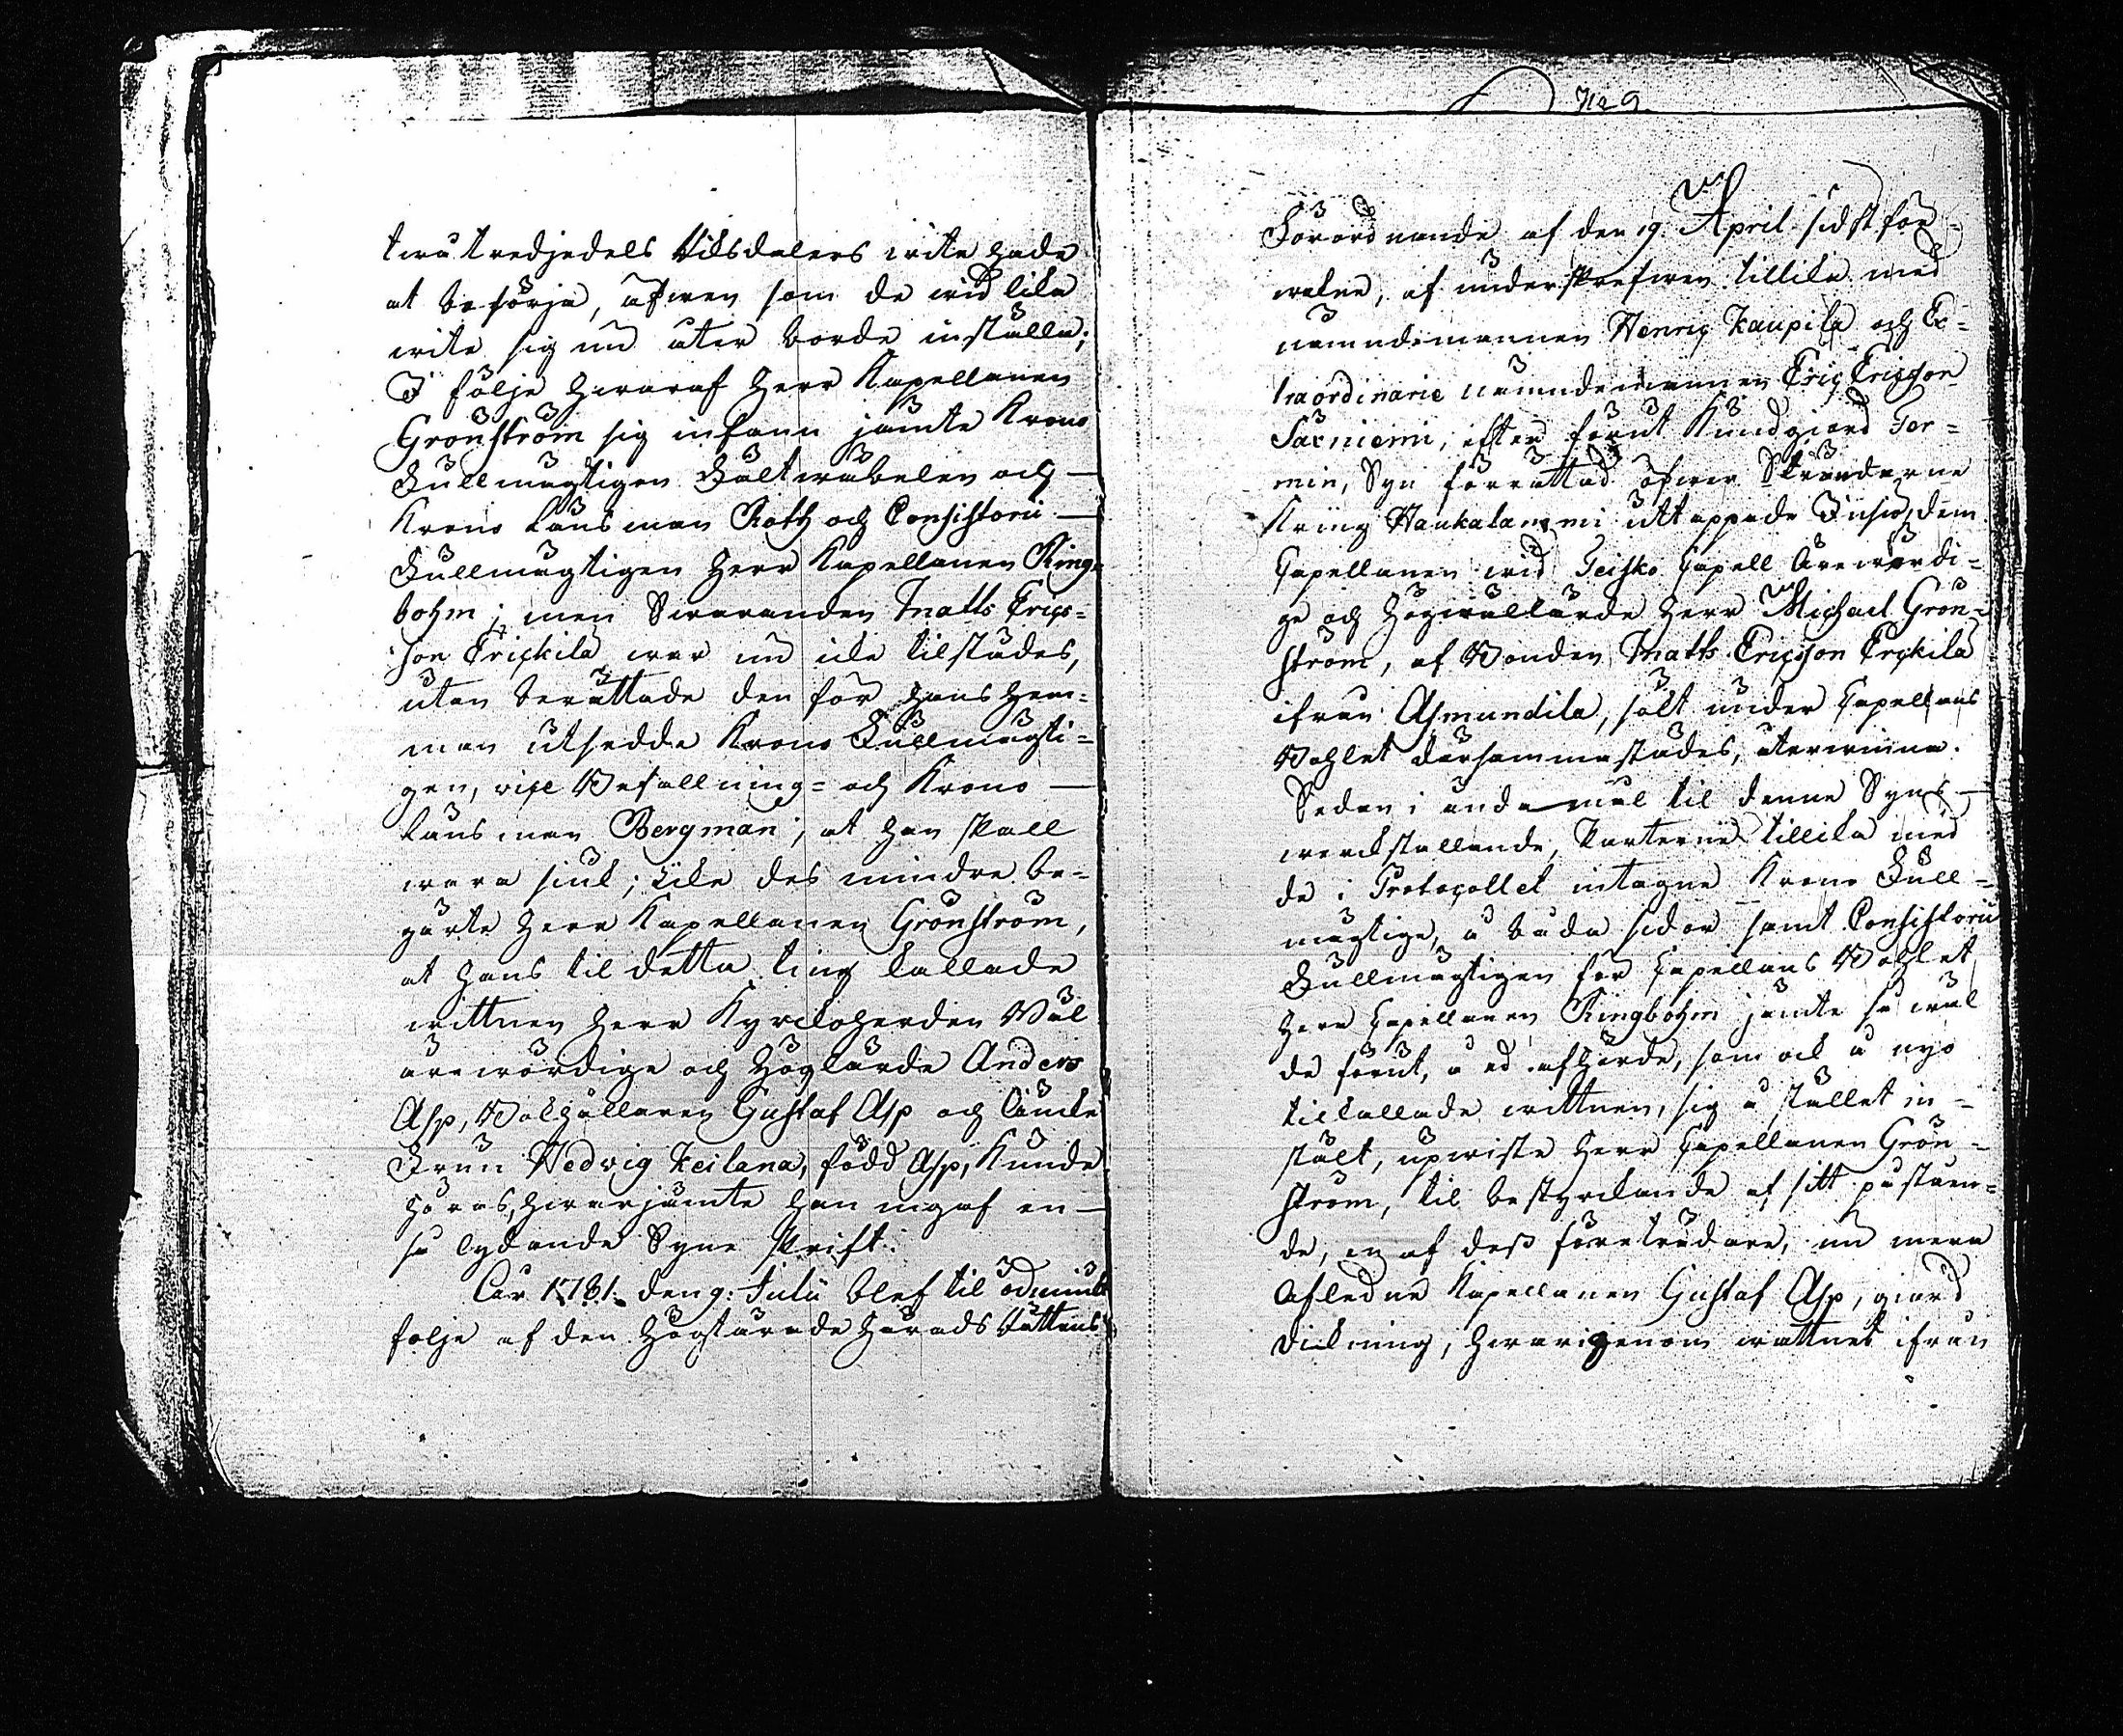 twå tredjedels Riksdalers wite hade
at besörja, äfwen som de wid lika
wite sig nu åter borde inställa;
I följe hwaraf Herr Kapellanen
Grönström sig infann jämte Krono
Fullmägtigen Fältwäbelen och
Krono Länsman Roth och Consistorii
Fullmägtigen Herr Kapellanen Ring-
bohm; men Swaranden Matts Erics-
son Erickilä war nu icke tilstädes,
utan berättade den för hans Hem-
man utsedde Krono Fullmägti-
gen, vice Befallning- och Krono
Länsman Bergman, at han skall
wara siuk; icke des mindre be-
gärte Herr Kapellanen Grönström,
at hans til detta ting kallade
wittnen Herr Kyrckoherden Wäl
ärewördige och Höglärde Anders
Asp, Bokhållaren Gustaf Asp och Äncke
Frun Hedvig Keilana, född Asp, Kunde
höras, hwarjämte han ingaf en
så lydande Syne Skrift:
År 1781. den 9: Julii blef til ödmiukt
följe af den Högstärade Härads Rättens
729
Förordnande af den 9 April sidst för-
wekne, af underskrefwen tillika med
nämndemannen Henric Kaupila och Ex-
traordinarie nämndemannen Eric Ericsson
Särniemi, efter förut Kundgiord Ter-
min, Syn förrättad öfwer Stränderne
Kring Haukalammi uttappade Insiö, dem
Capellanen wid Teisko Capell Ärewördi-
ge och Högwällärde Herr Michael Grön-
ström, af Bonden Matts Ericsson Erckilä
ifrån Asmundila, sökt under Capellans
Bohlet därsammastädes, återwinna.
Sedan i ändamål til denne Syns
werckställande, Parterne tillika med
de i Protocollet intagne Krono Full-
mägtige, å båda sidor samt Consistorii
Fullmägtigen för Capellans Bohlet
Herr Capellanen Ringbohm jämte så wäl
de förut, å ed afhörde, som ock å nyo
tilkallade wittnen, sig å stället in-
stält, upwiste Herr Capellanen Grön-
ström, til bestyrckande af sitt påståen-
de, en af dess företrädare, nu mera
Afledne Kapellanen Gustaf Asp, giord
dickning, hwarigenom wattnet ifrån